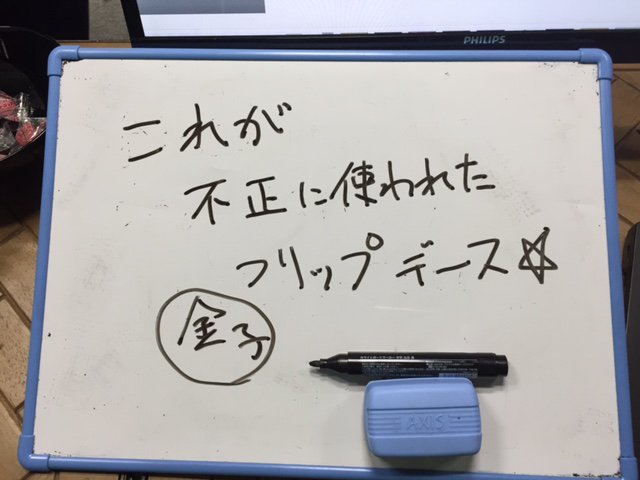 PHILIPS
これが
不正に使われた
フリップデース☆
金子
AXIS